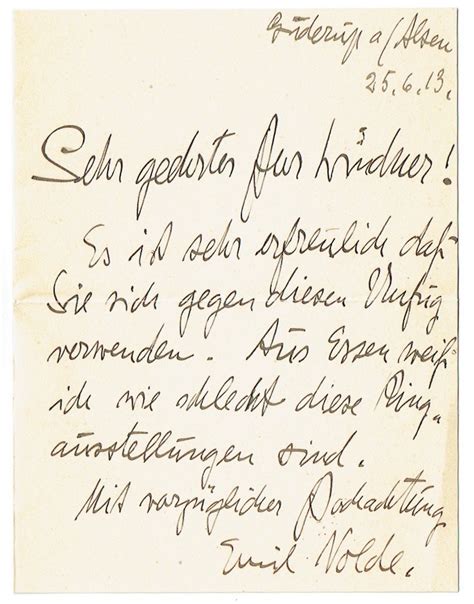 Guderup a/Alsen
25.6.13.
Sehr geehrter Herr Lindner!
Es ist sehr erfreulich daß
Sie sich gegen diesen Unfug
verwenden. Aus Essen weiß
ich wie schlecht diese Ring-
ausstellungen sind.
Mit vorzüglicher Hochachtung
Emil Nolde.